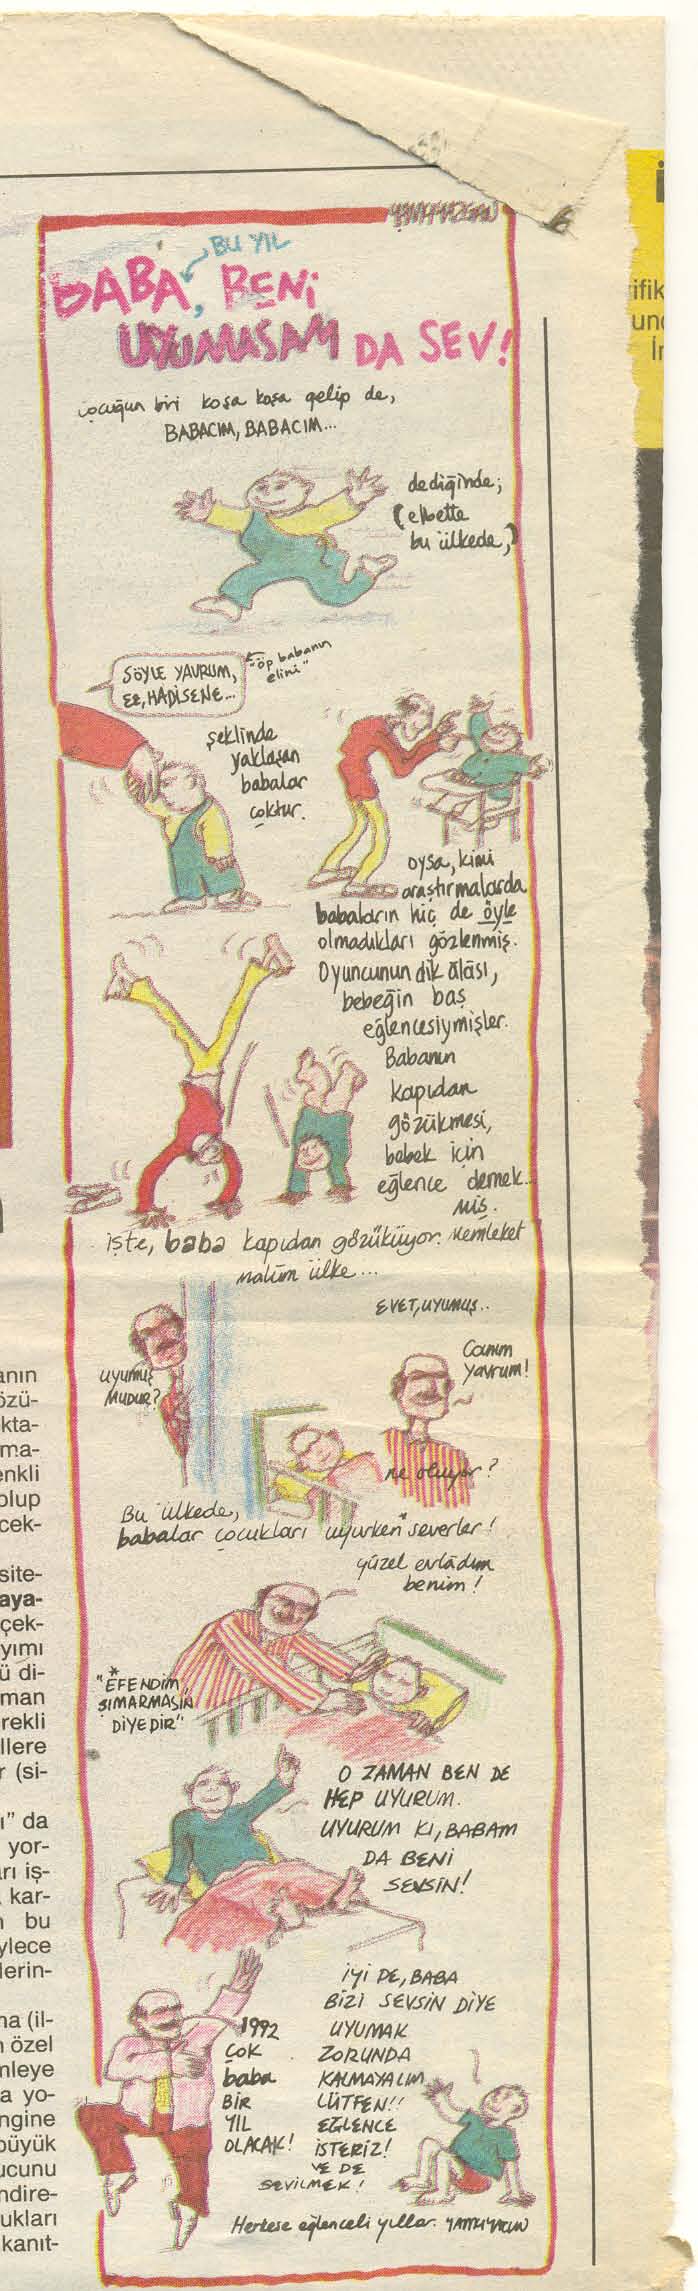 BU YIL
BABA, BENİ
UYUMASAM DA SEV!
çocuğun biri koşa koşa gelip de,
BABACIM, BABACIM...
dediğinde;
(elbette
bu ülkede,)
SÖYLE YAVRUM,
EE, HADİSENE...
"öp babanın
elini"
şeklinde
yaklaşan
babalar
çoktur.
oysa, kimi
araştırmalarda
babaların hiç de öyle
olmadıkları gözlenmiş.
Oyuncunun dik âlâsı,
bebeğin baş
eğlencesiymişler.
Babanın
kapıdan
gözükmesi,
bebek için
eğlence demek..
miş.
işte, baba kapıdan gözüküyor. Memleket
malûm ülke...
EVET, UYUMUŞ..
uyumuş
MUDUR?
Canım
yavrum!
ne oluyor?
Bu ülkede,
babalar çocukları uyurken* severler!
güzel evlâdım
benim!
"*EFENDİM
ŞIMARMASIN
DİYEDİR"
O ZAMAN BEN DE
HEP UYURUM.
UYURUM Kİ, BABAM
DA BENİ
SEVSİN!
1992
ÇOK
baba
BİR
YIL
OLACAK!
İYİ DE, BABA
BİZİ SEVSİN DİYE
UYUMAK
ZORUNDA
KALMAYALIM
LÜTFEN!!
EĞLENCE
İSTERİZ!
VE DE
SEVİLMEK!
Herkese eğlenceli yıllar.
ifik
und
İr
anın
özü-
kta-
ma-
enkli
olup
cek-
site-
aya-
çek-
yımı
ü di-
man
erekli
llere
r (si-
ı" da
yor-
arı iş-
kar-
n bu
ylece
lerin-
na (il-
n özel
mleye
a yo-
ngine
büyük
ucunu
ndire-
ukları
kanıt-